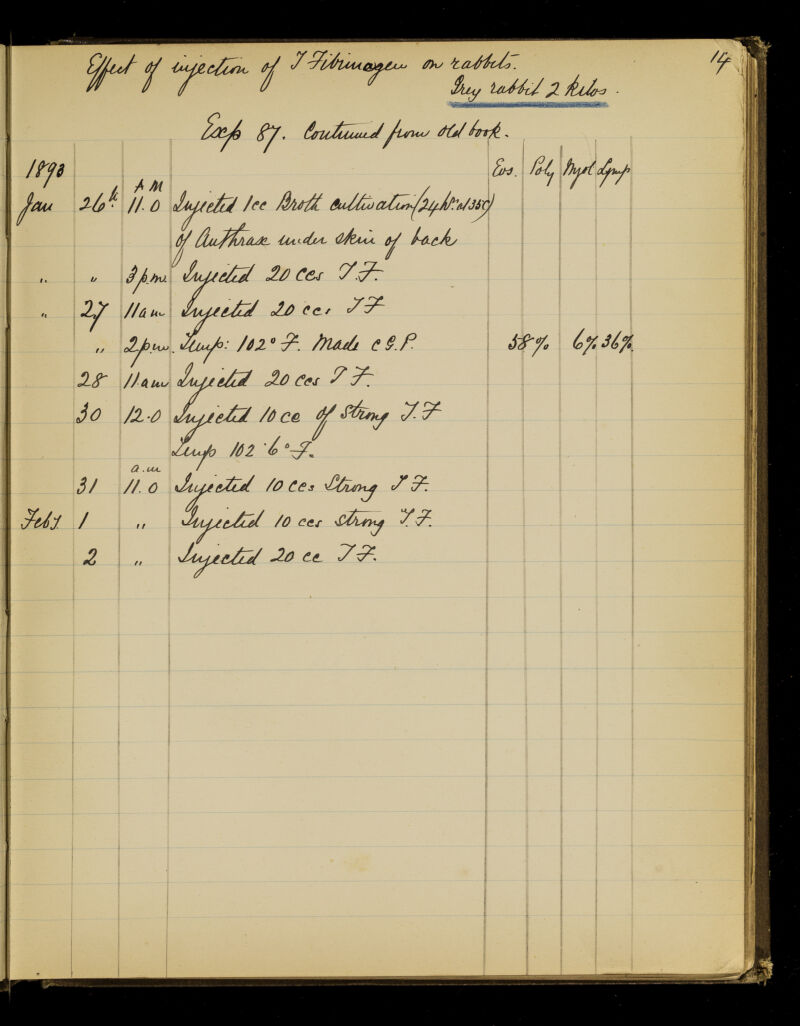 14
Effect of injection of T Fibrinogen on rabbits.
Grey rabbit 2 kilos.
Exp 87. Continued from old book.
1893 Eos. Poly Myel Lymp
Jan 26th A M 11.0 Injected 1cc Broth cultivation (24 hrs at 35C)
of Anthrax under skin of back
" " 3 p.m. Injected 20 ccs T.F.
" 27 11 am Injected 20 ccs T F
" 2 p.m. Temp: 102° F. Made c G.P. 58% 6% 36%
28 11 am Injected 20 ccs T F.
30 12.0 Injected 10 cc of Strong T.F
Temp 102.6° F.
31 a.m 11.0 Injected 10 ccs Strong T F.
Feby 1 " Injected 10 ccs strong T.F.
2 " Injected 20 cc T F.